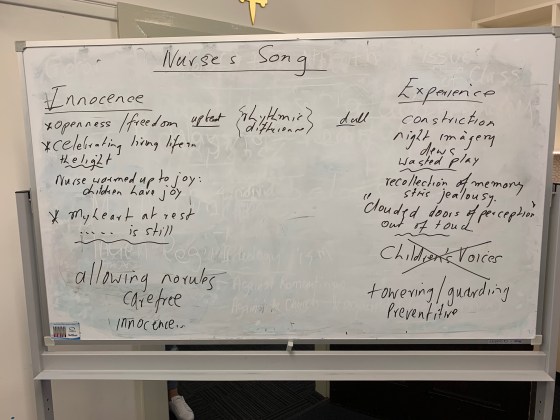 Nurse's Song
Innocence
* openness / freedom upbeat {rhythmic difference} dull
* celebrating living life in
the light
Nurse warmed up to joy:
children have joy
* My heart at rest
..... is still
allowing no rules
carefree
innocence..
Experience
constriction
night imagery
dews
wasted play
recollection of memory
jealousy.
"clouded doors of perception"
out of touch
Children's Voices
towering / guarding
Preventitive